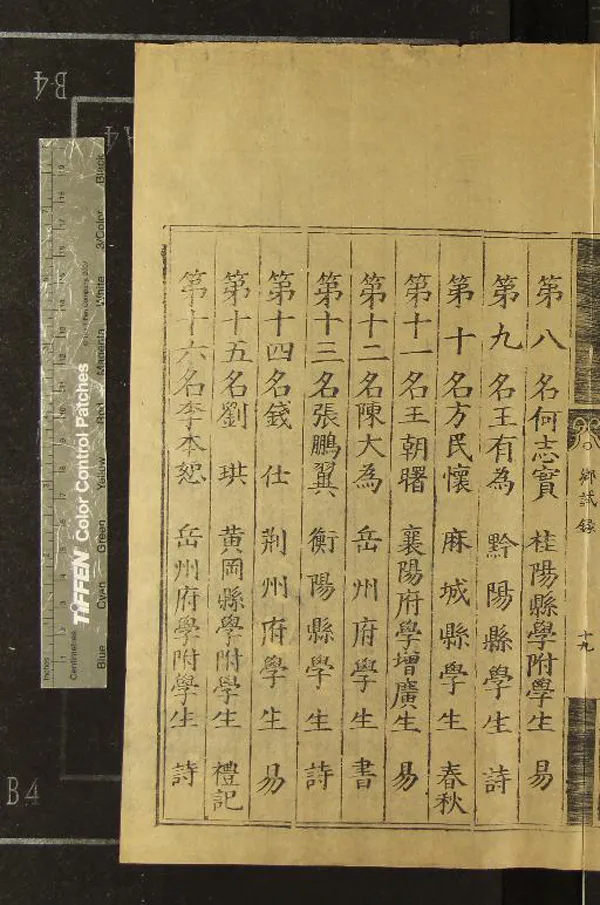 鄉試錄
十九
第八名何志實 桂陽縣學附學生 易
第九名王有為 黔陽縣學生 詩
第十名方民懷 麻城縣學生 春秋
第十一名王朝曙 襄陽府學增廣生 易
第十二名陳大為 岳州府學生 書
第十三名張鵬翼 衡陽縣學生 詩
第十四名錢仕 荆州府學生 易
第十五名劉珙 黄岡縣學附學生 禮記
第十六名李本恕 岳州府學附學生 詩
B4
A4
B4
Inches
Centimetres
1 2 3 4 5 6 7 8 9 10 11 12 13 14 15 16 17 18 19
TIFFEN Color Control Patches
Blue Cyan Green Yellow Red Magenta White 3/Color Black